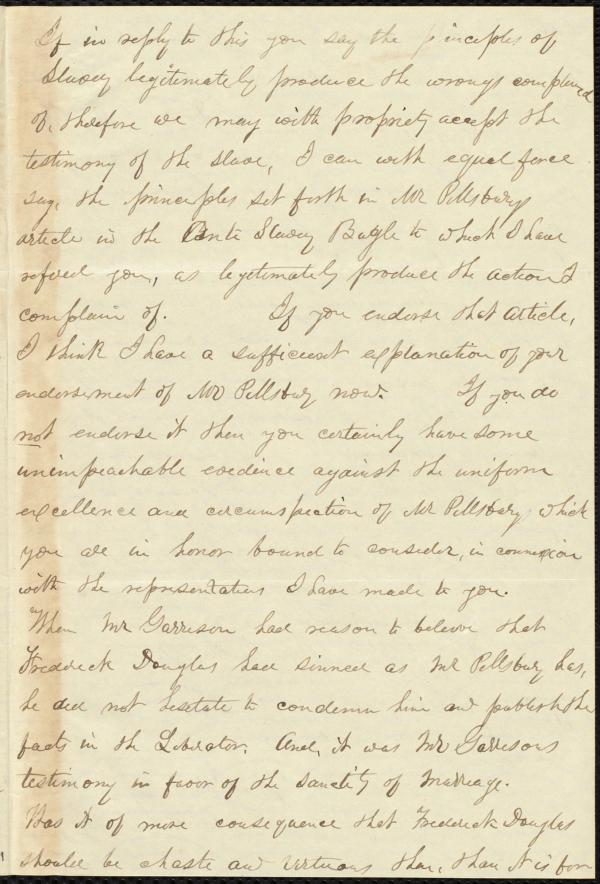 If in reply to this you say the principles of
Slavery legitimately produce the wrongs complained
of, therefore we may with propriety accept the
testimony of the slave, I can with equal force
say, the principles set forth in Mr Pillsburys
article in the Anti Slavery Bugle to which I have
refered you, as legitimately produce the action I
complain of. If you endorse that article,
I think I have a sufficient explanation of your
endorsement of Mr Pillsbury now. If you do
not endorse it then you certainly have some
unimpeachable evidence against the uniform
excellence and circumspection of Mr Pillsbury, which
you are in honor bound to consider, in connexion
with the representations I have made to you.
When Mr Garrison had reason to believe that
Frederick Douglas had sinned as Mr Pillsbury has,
he did not hesitate to condemn him and publish the
facts in the Liberator. And, it was Mr Garrisons
testimony in favor of the sanctity of Marriage.
Was it of more consequence that Frederick Douglas
should be chaste and virtuous then, than it is for